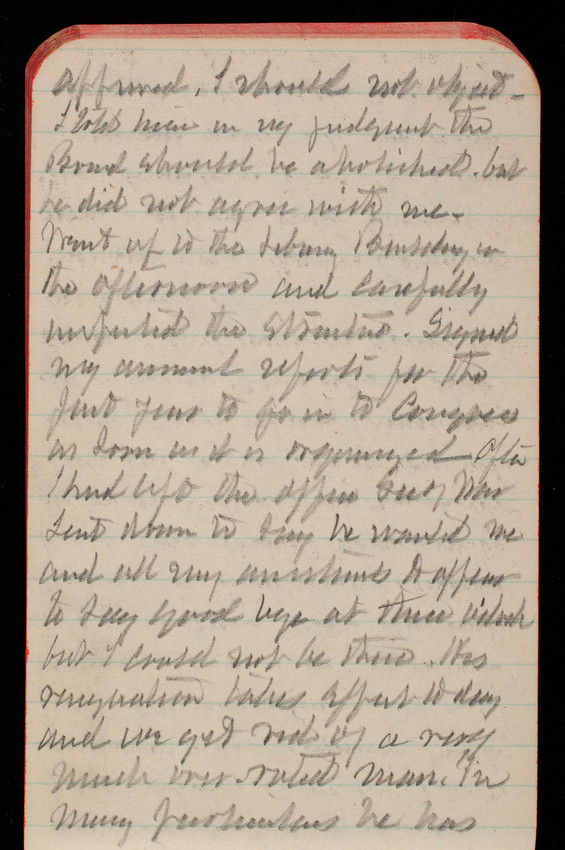 approved, I should not object -
I told him in my judgment the
Board should be abolished. but
he did not agree with me -
Went up to the Library Building in
the afternoon and carefully
inspected the structure. Signed
my annual reports for the
past year to go in to Congress
as soon as it is organized After
I had left the office Secy War
sent down to say he wanted me
and all my assistants to appear
to say good bye at three o'clock
but I could not be there. His
resignation takes effect to day
and we get rid of a very
much over-rated man. In
many particulars he has